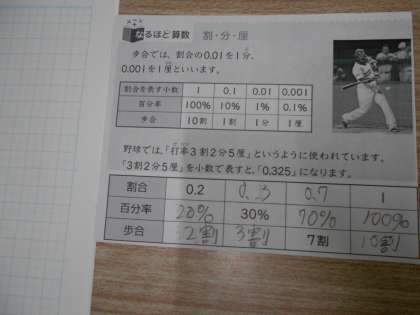 なるほど算数 割・分・厘
歩合では、割合の0.01を1分、
0.001を1厘といいます。
割合を表す小数 1 0.1 0.01 0.001
百分率 100% 10% 1% 0.1%
歩合 10割 1割 1分 1厘
野球では、「打率3割2分5厘」というように使われています。
「3割2分5厘」を小数で表すと、「0.325」になります。
割合 0.2 0.3 0.7 1
百分率 20% 30% 70% 100%
歩合 2割 3割 7割 10割